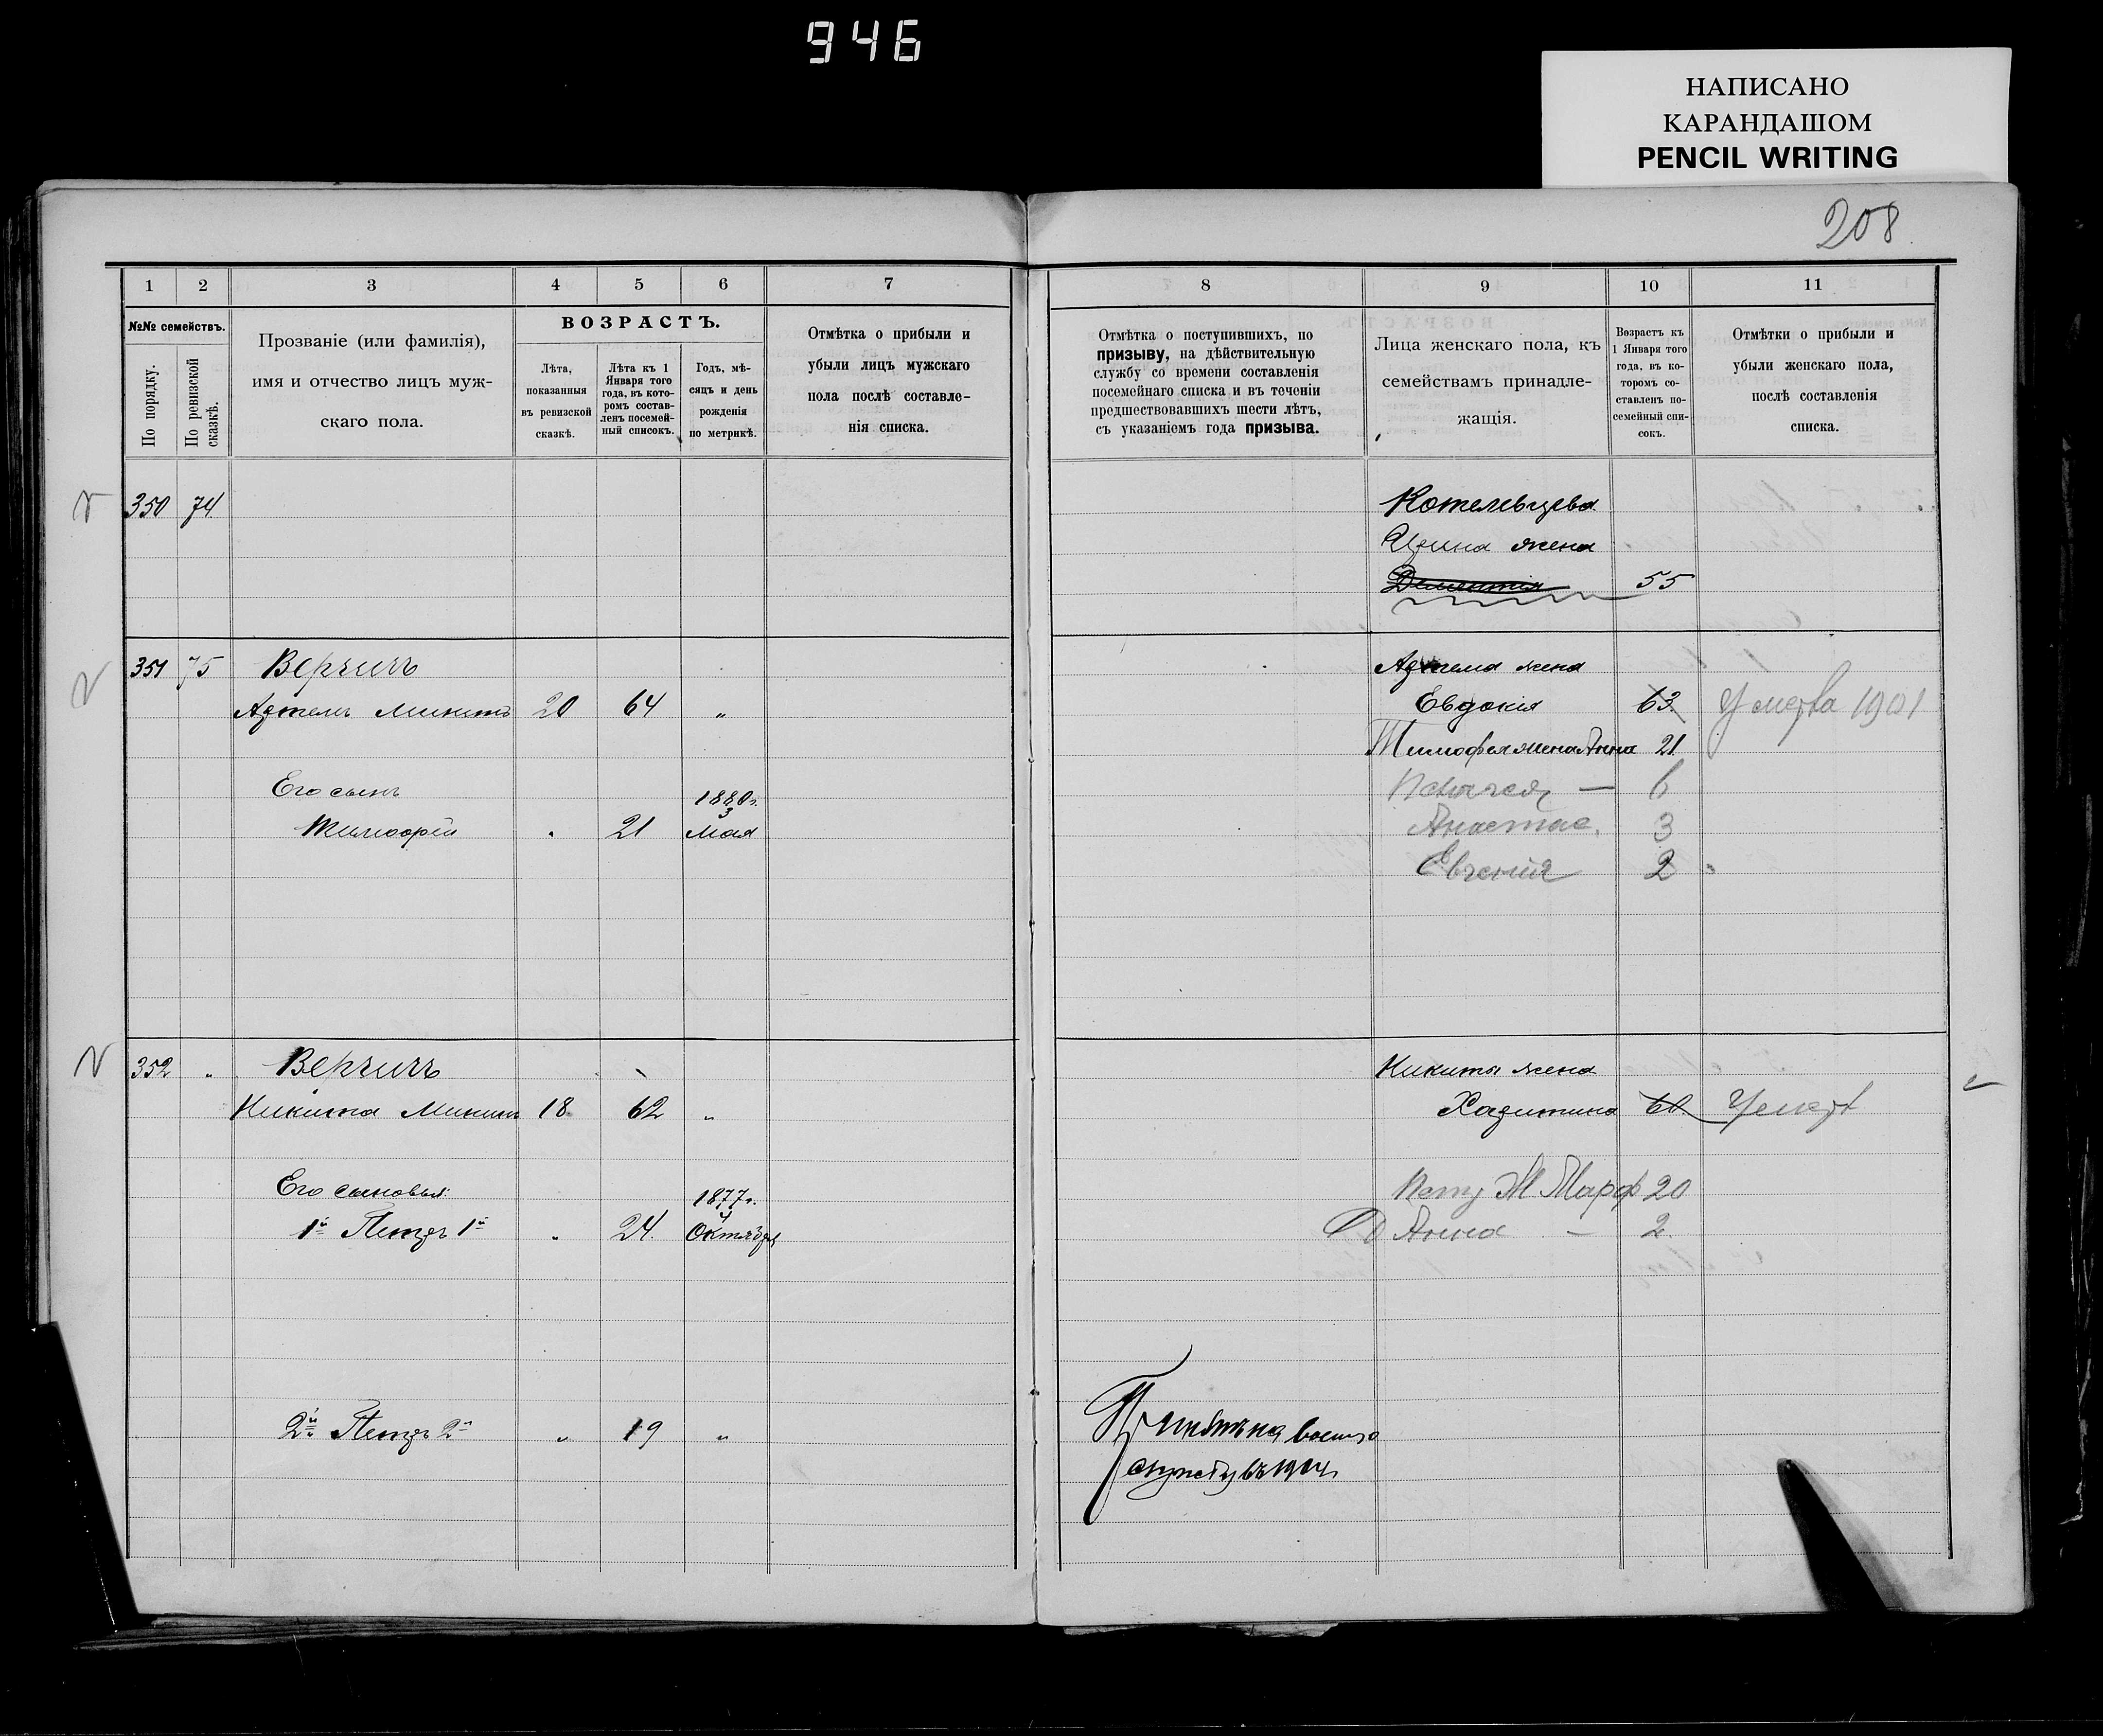 946
НАПИСАНО
КАРАНДАШОМ
PENCIL WRITING
208
1 2 3 4 5 6 7
№№ семействъ.
По порядку.
По ревизской сказкѣ.
Прозваніе (или фамилія),
имя и отчество лицъ муж-
скаго пола.
ВОЗРАСТЪ.
Лѣта,
показанныя
въ ревизской
сказкѣ.
Лѣта къ 1
Января того
года, въ кото-
ромъ состав-
ленъ посемей-
ный списокъ.
Годъ, мѣ-
сяцъ и день
рожденія
по метрикѣ.
Отмѣтка о прибыли и
убыли лицъ мужскаго
пола послѣ составле-
нія списка.
350 74
351 75 Верчичъ
Артемъ Микитъ 20 64 „
Его сынъ 1880 г.
3
Тимофей 21 Мая
352 „ Верчичъ
Никита Микит 18 62 „
Его сыновья: 1877 г.
4
1й Петръ 1й „ 24. Октября
2й Петръ 2й „ 19 „
8 9 10 11
Отмѣтка о поступившихъ, по
призыву, на дѣйствительную
службу со времени составленія
посемейнаго списка и въ теченіи
предшествовавшихъ шести лѣтъ,
съ указаніемъ года призыва.
Лица женскаго пола, къ
семействамъ принадле-
жащія.
Возрастъ къ
1 Января того
года, въ ко-
торомъ со-
ставленъ по-
семейный спи-
сокъ.
Отмѣтки о прибыли и
убыли женскаго пола,
послѣ составленія
списка.
Котелевцева
Ирина жена
Дементія 55
Артема жена
Евдокія 63 Умерла 1901
Тимофея жена Анна 21
6
Анастас. 3
Евгенія 2
Никиты жена
Харитина 60 Умерл
Петр Ж Марф 20
Д Анна — 2.
Принятъ на военную
службу въ 1904 г.